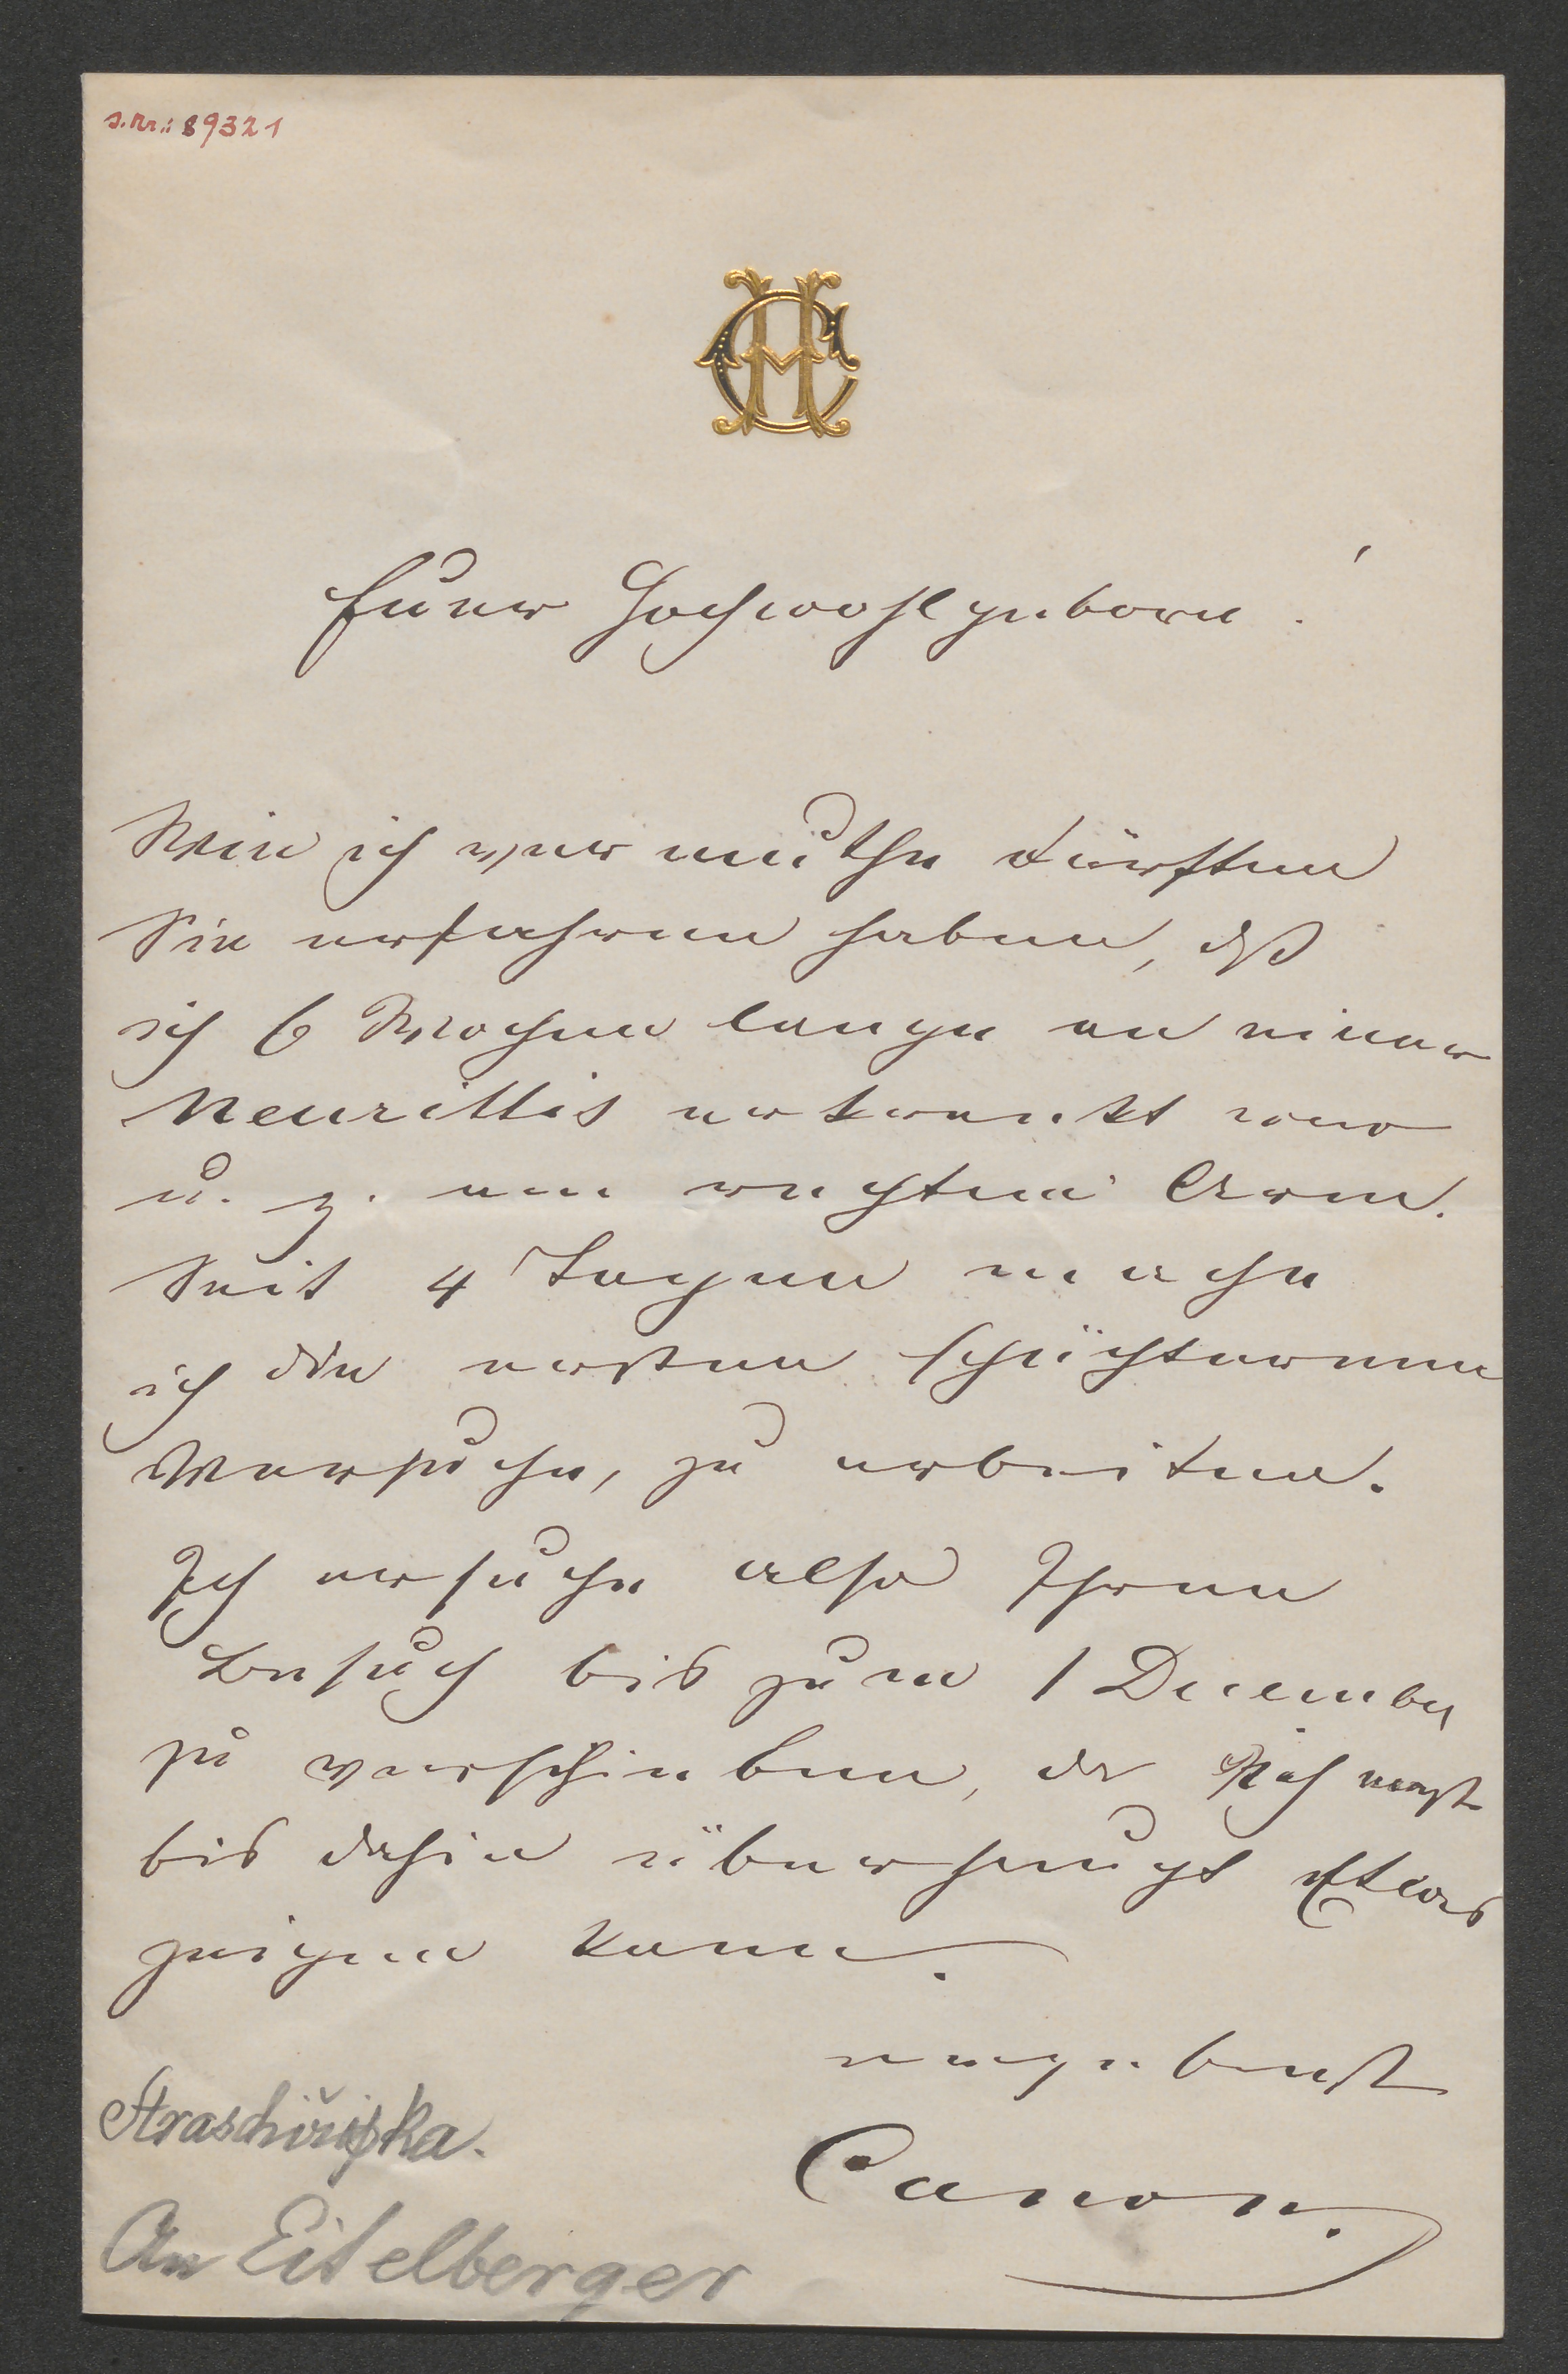 J. Nr.: 89321
HC
Euer Hochwohlgeboren!
Wie ich vermuthe dürften
Sie erfahren haben, dß
ich 6 Wochen lange an einer
Neurittis erkrankt war
u. z. am rechten Arm.
Seit 4 Tagen mache
ich die ersten schüchternen
Versuche, zu arbeiten.
Ich ersuche also Ihren
Besuch bis zum 1 December
zu verschieben, da ich erst
bis dahin überhaupt Etwas
zeigen kann.
ergebenst
Canon.
Straschiřipka.
An Eitelberger